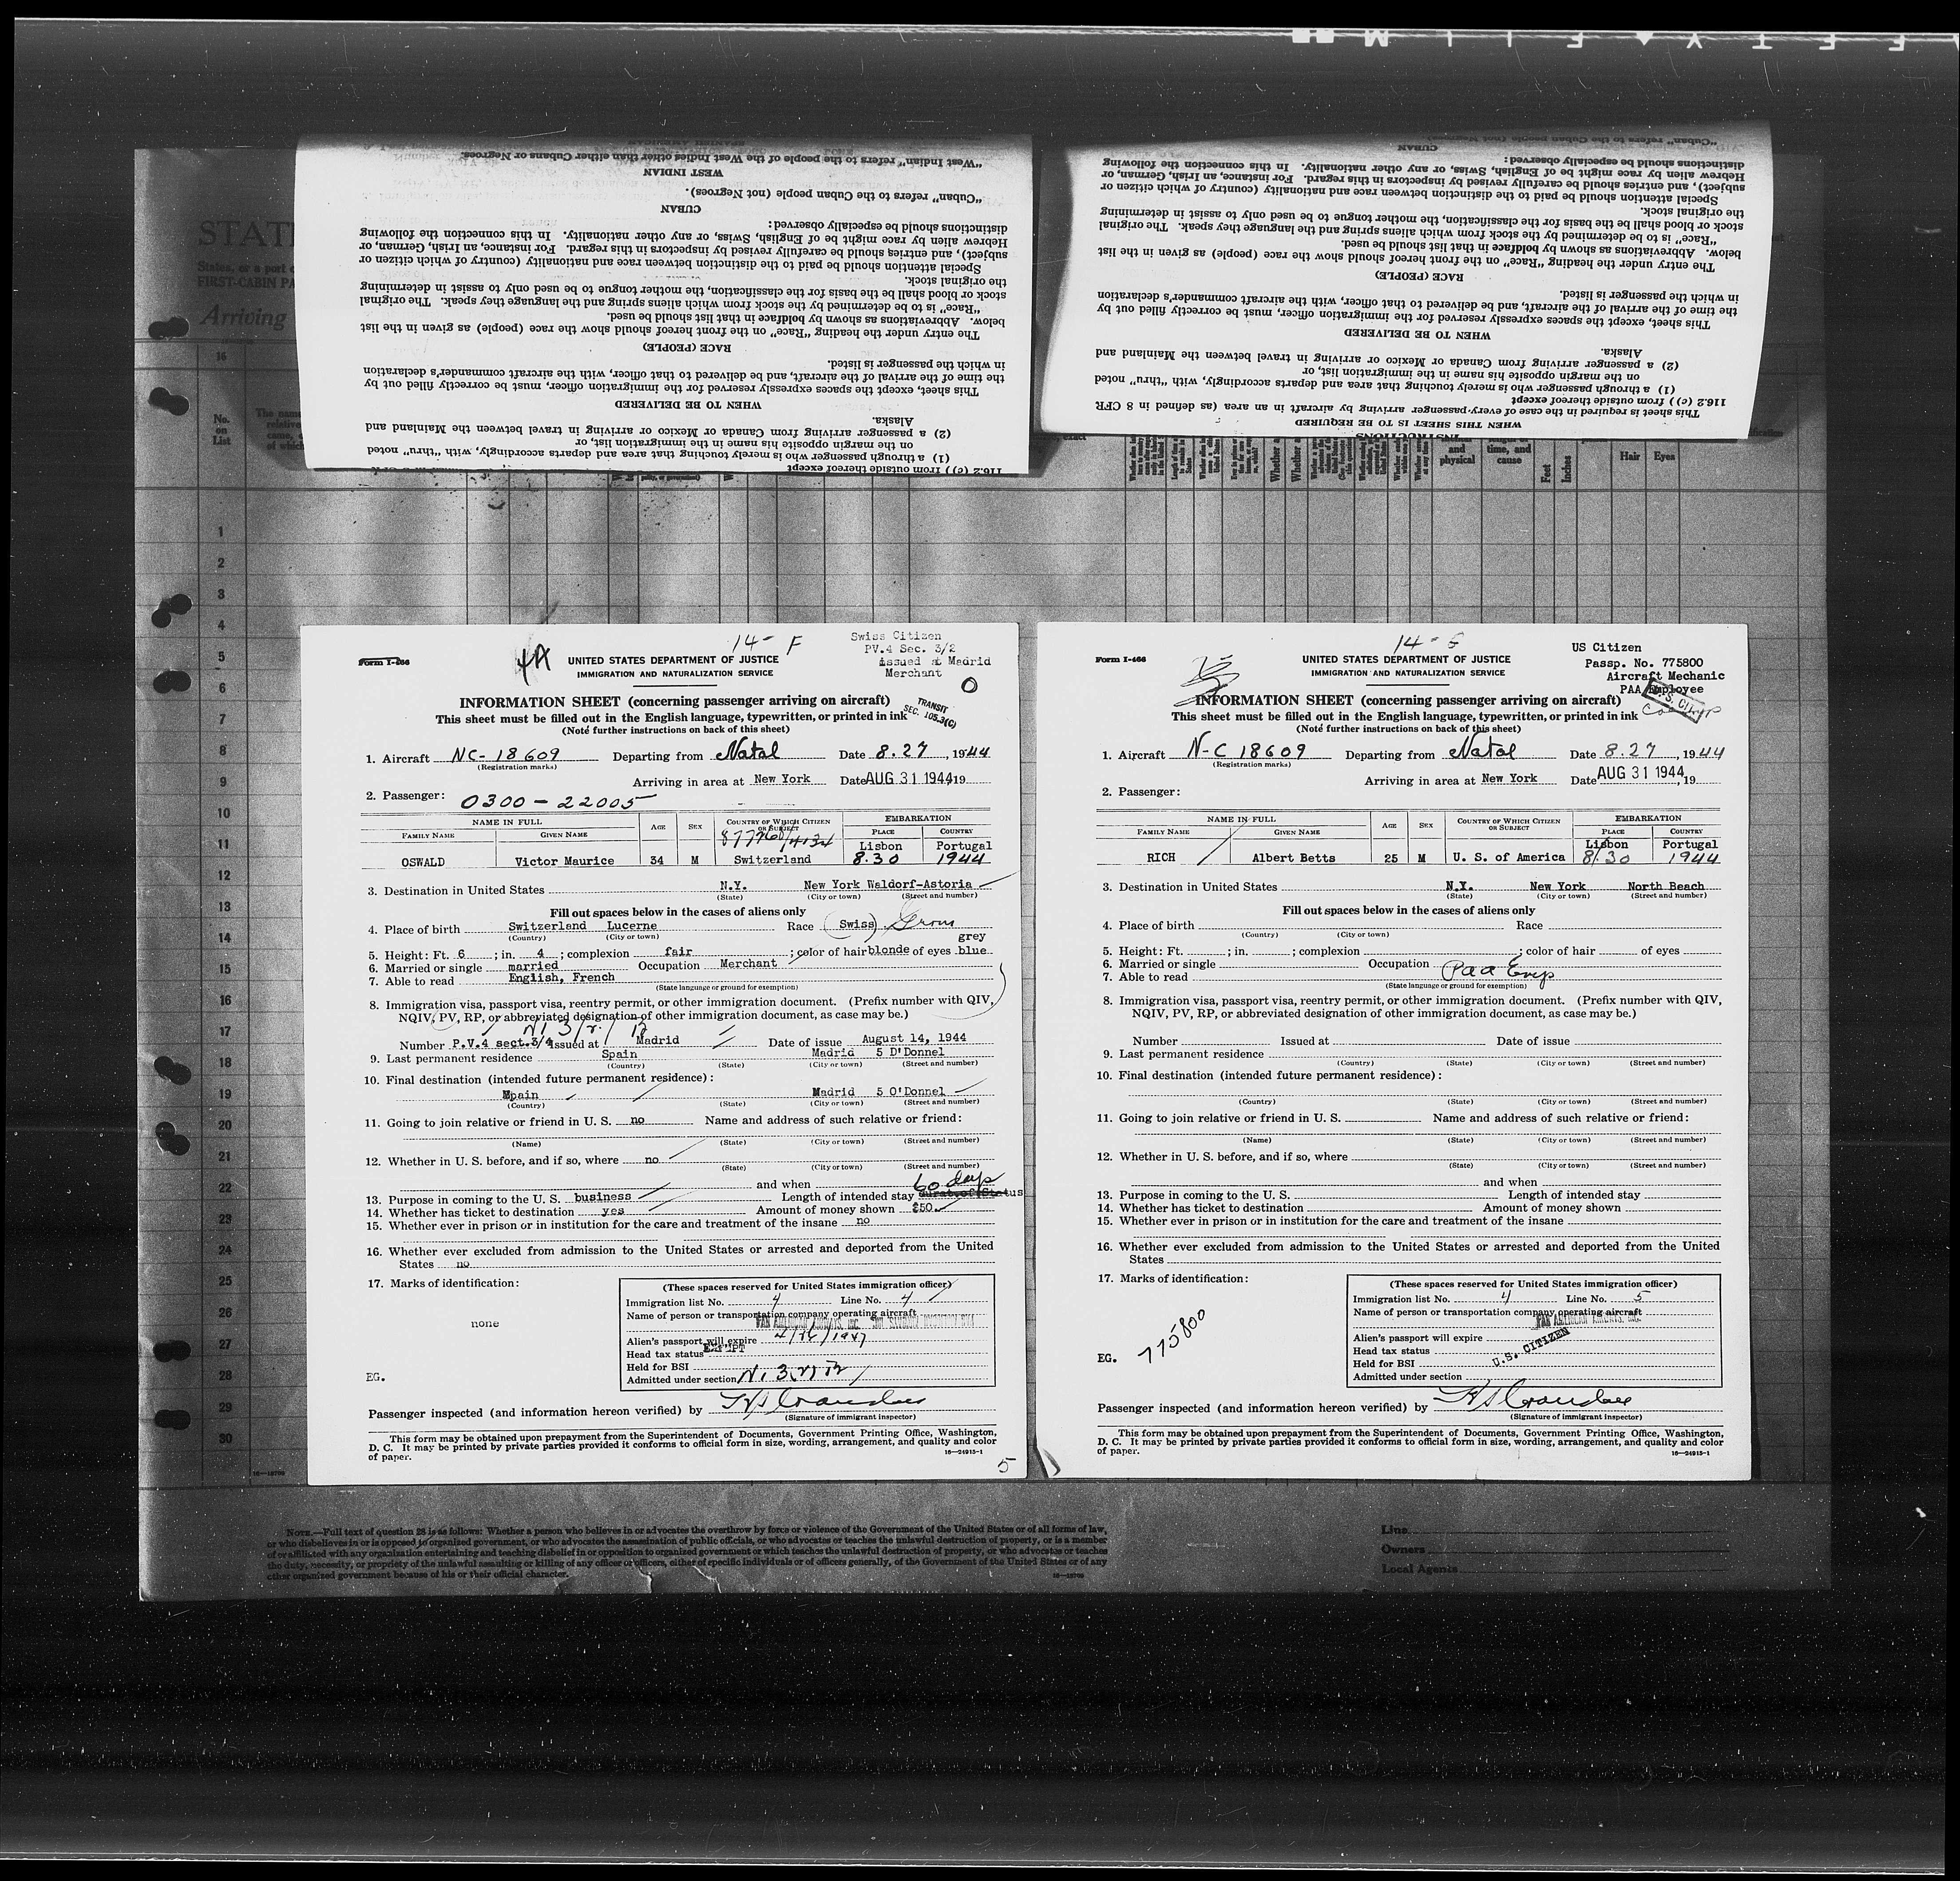 14- F
Swiss Citizen
PV.4 Sec. 3/2
issued at Madrid
Merchant
O
Form I-466
4A
UNITED STATES DEPARTMENT OF JUSTICE
IMMIGRATION AND NATURALIZATION SERVICE
INFORMATION SHEET (concerning passenger arriving on aircraft)
TRANSIT
SEC. 105.3(C)
This sheet must be filled out in the English language, typewritten, or printed in ink
(Note further instructions on back of this sheet)
1. Aircraft NC-18609 Departing from Natal Date 8.27, 1944
(Registration marks)
Arriving in area at New York Date AUG 31 1944 19
2. Passenger: 0300-22005
NAME IN FULL AGE SEX COUNTRY OF WHICH CITIZEN OR SUBJECT EMBARKATION
FAMILY NAME GIVEN NAME PLACE COUNTRY
Lisbon Portugal
OSWALD Victor Maurice 34 M Switzerland 8.30 1944
3. Destination in United States N.Y. New York Waldorf-Astoria
(State) (City or town) (Street and number)
Fill out spaces below in the cases of aliens only
4. Place of birth Switzerland Lucerne Race (Swiss)
(Country) (City or town)
grey
5. Height: Ft. 6; in. 4; complexion fair; color of hair blonde of eyes blue
6. Married or single married Occupation Merchant
7. Able to read English, French
(State language or ground for exemption)
8. Immigration visa, passport visa, reentry permit, or other immigration document. (Prefix number with QIV,
NQIV, PV, RP, or abbreviated designation of other immigration document, as case may be.)
Number P.V.4 sect.3/4 Issued at Madrid Date of issue August 14, 1944
9. Last permanent residence Spain Madrid 5 D'Donnel
(Country) (State) (City or town) (Street and number)
10. Final destination (intended future permanent residence):
Mpain Madrid 5 O'Donnel
(Country) (State) (City or town) (Street and number)
11. Going to join relative or friend in U. S. no Name and address of such relative or friend:
(Name) (State) (City or town) (Street and number)
12. Whether in U. S. before, and if so, where no
(State) (City or town) (Street and number)
and when
60 days
13. Purpose in coming to the U. S. business Length of intended stay
14. Whether has ticket to destination yes Amount of money shown $50.
15. Whether ever in prison or in institution for the care and treatment of the insane no
16. Whether ever excluded from admission to the United States or arrested and deported from the United
States no
17. Marks of identification:
none
EG.
(These spaces reserved for United States immigration officer)
Immigration list No. 4 Line No. 4
Name of person or transportation company operating aircraft
PAN AMERICAN AIRWAYS, INC.
Alien's passport will expire
Head tax status
Held for BSI
Admitted under section
Passenger inspected (and information hereon verified) by
(Signature of immigrant inspector)
This form may be obtained upon prepayment from the Superintendent of Documents, Government Printing Office, Washington,
D. C. It may be printed by private parties provided it conforms to official form in size, wording, arrangement, and quality and color
of paper.
16—24915-1
5
14-
US Citizen
Passp. No. 775800
Aircraft Mechanic
PAA Employee
Form I-466
UNITED STATES DEPARTMENT OF JUSTICE
IMMIGRATION AND NATURALIZATION SERVICE
INFORMATION SHEET (concerning passenger arriving on aircraft)
This sheet must be filled out in the English language, typewritten, or printed in ink
(Note further instructions on back of this sheet)
1. Aircraft N-C 18609 Departing from Natal Date 8.27, 1944
(Registration marks)
Arriving in area at New York Date AUG 31 1944, 19
2. Passenger:
NAME IN FULL AGE SEX COUNTRY OF WHICH CITIZEN OR SUBJECT EMBARKATION
FAMILY NAME GIVEN NAME PLACE COUNTRY
Lisbon Portugal
RICH Albert Betts 25 M U. S. of America 8/30 1944
3. Destination in United States N.Y. New York North Beach
(State) (City or town) (Street and number)
Fill out spaces below in the cases of aliens only
4. Place of birth Race
(Country) (City or town)
5. Height: Ft. ; in. ; complexion ; color of hair of eyes
6. Married or single Occupation
7. Able to read Paa Emp
(State language or ground for exemption)
8. Immigration visa, passport visa, reentry permit, or other immigration document. (Prefix number with QIV,
NQIV, PV, RP, or abbreviated designation of other immigration document, as case may be.)
Number Issued at Date of issue
9. Last permanent residence
(Country) (State) (City or town) (Street and number)
10. Final destination (intended future permanent residence):
(Country) (State) (City or town) (Street and number)
11. Going to join relative or friend in U. S. Name and address of such relative or friend:
(Name) (State) (City or town) (Street and number)
12. Whether in U. S. before, and if so, where
(State) (City or town) (Street and number)
and when
13. Purpose in coming to the U. S. Length of intended stay
14. Whether has ticket to destination Amount of money shown
15. Whether ever in prison or in institution for the care and treatment of the insane
16. Whether ever excluded from admission to the United States or arrested and deported from the United
States
17. Marks of identification:
775800
EG.
(These spaces reserved for United States immigration officer)
Immigration list No. 4 Line No. 5
Name of person or transportation company operating aircraft
PAN AMERICAN AIRWAYS, INC.
Alien's passport will expire
Head tax status
Held for BSI U.S. CITIZEN
Admitted under section
Passenger inspected (and information hereon verified) by
(Signature of immigrant inspector)
This form may be obtained upon prepayment from the Superintendent of Documents, Government Printing Office, Washington,
D. C. It may be printed by private parties provided it conforms to official form in size, wording, arrangement, and quality and color
of paper.
16—24915-1
116.2 (c)) from outside thereof except
(1) a through passenger who is merely touching that area and departs accordingly, with "thru" noted
on the margin opposite his name in the immigration list, or
(2) a passenger arriving from Canada or Mexico or arriving in travel between the Mainland and
Alaska.
WHEN TO BE DELIVERED
This sheet, except the spaces expressly reserved for the immigration officer, must be correctly filled out by
the time of the arrival of the aircraft, and be delivered to that officer, with the aircraft commander's declaration
in which the passenger is listed.
RACE (PEOPLE)
The entry under the heading "Race" on the front hereof should show the race (people) as given in the list
below. Abbreviations as shown by boldface in that list should be used.
"Race" is to be determined by the stock from which aliens spring and the language they speak. The original
stock or blood shall be the basis for the classification, the mother tongue to be used only to assist in determining
the original stock.
Special attention should be paid to the distinction between race and nationality (country of which citizen or
subject), and entries should be carefully revised by inspectors in this regard. For instance, an Irish, German, or
Hebrew alien by race might be of English, Swiss, or any other nationality. In this connection the following
distinctions should be especially observed:
CUBAN
"Cuban" refers to the Cuban people (not Negroes).
WEST INDIAN
"West Indian" refers to the people of the West Indies other than either Cubans or Negroes.
INSTRUCTIONS
WHEN THIS SHEET IS TO BE REQUIRED
This sheet is required in the case of every passenger arriving by aircraft in an area (as defined in 8 CFR
116.2 (c)) from outside thereof except
(1) a through passenger who is merely touching that area and departs accordingly, with "thru" noted
on the margin opposite his name in the immigration list, or
(2) a passenger arriving from Canada or Mexico or arriving in travel between the Mainland and
Alaska.
WHEN TO BE DELIVERED
This sheet, except the spaces expressly reserved for the immigration officer, must be correctly filled out by
the time of the arrival of the aircraft, and be delivered to that officer, with the aircraft commander's declaration
in which the passenger is listed.
RACE (PEOPLE)
The entry under the heading "Race" on the front hereof should show the race (people) as given in the list
below. Abbreviations as shown by boldface in that list should be used.
"Race" is to be determined by the stock from which aliens spring and the language they speak. The original
stock or blood shall be the basis for the classification, the mother tongue to be used only to assist in determining
the original stock.
Special attention should be paid to the distinction between race and nationality (country of which citizen or
subject), and entries should be carefully revised by inspectors in this regard. For instance, an Irish, German, or
Hebrew alien by race might be of English, Swiss, or any other nationality. In this connection the following
distinctions should be especially observed:
CUBAN
"Cuban" refers to the Cuban people (not Negroes)
STAT
States, or a port
FIRST-CABIN PA
Arriving
16
No.
on
List
and
physical
time, and
cause
Feet
Inches
Hair
Eyes
1
2
3
4
5
6
7
8
9
10
11
12
13
14
15
16
17
18
19
20
21
22
23
24
25
26
27
28
29
30
NOTE.—Full text of question 28 is as follows: Whether a person who believes in or advocates the overthrow by force or violence of the Government of the United States or of all forms of law,
or who disbelieves in or is opposed to organized government, or who advocates the assassination of public officials, or who advocates or teaches the unlawful destruction of property, or is a member
of or affiliated with any organization entertaining and teaching disbelief in or opposition to organized government or which teaches the unlawful destruction of property, or who advocates or teaches
the duty, necessity, or propriety of the unlawful assaulting or killing of any officer or officers, either of specific individuals or of officers generally, of the Government of the United States or of any
other organized government because of his or their official character.
Line
Owners
Local Agents